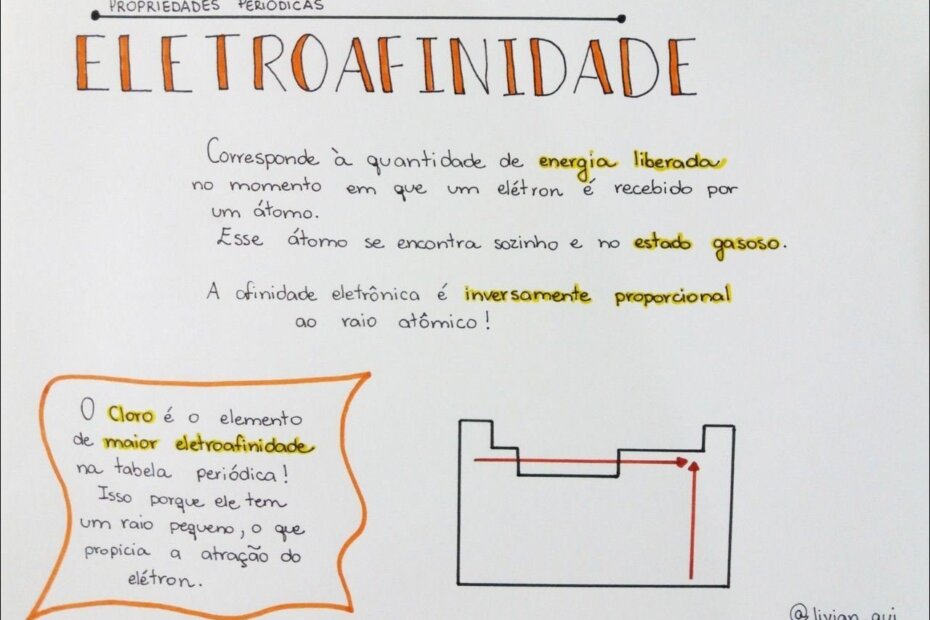 PROPRIEDADES PERIÓDICAS
ELETROAFINIDADE
Corresponde à quantidade de energia liberada
no momento em que um elétron é recebido por
um átomo.
Esse átomo se encontra sozinho e no estado gasoso.
A afinidade eletrônica é inversamente proporcional
ao raio atômico!
O Cloro é o elemento
de maior eletroafinidade
na tabela periódica!
Isso porque ele tem
um raio pequeno, o que
propicia a atração do
elétron.